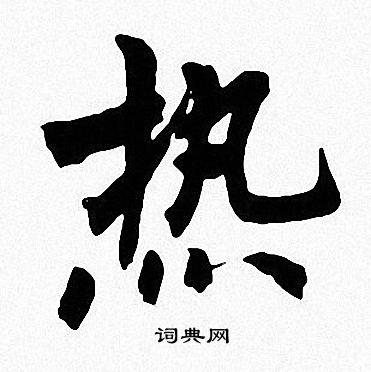 热
词典网